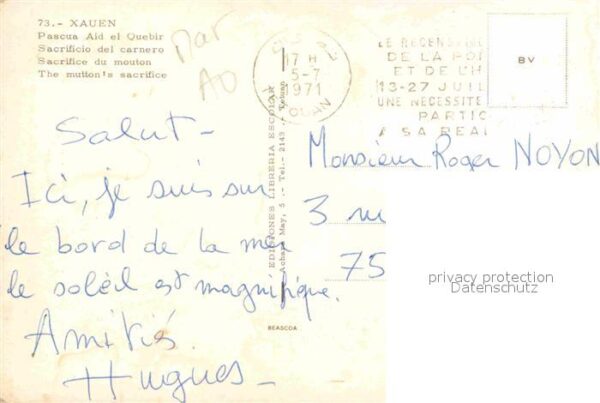 73.- XAUEN
Pascua Aid el Quebir
Sacrificio del carnero
Sacrifice du mouton
The mutton's sacrifice
Mar
AD
17 H
5-7
1971
LE RECENSEM
DE LA PO
ET DE L'H
13-27 JUIL
UNE NECESSITE
PARTIC
A SA REAL
BV
Salut-
Ici, je suis sur
le bord de la mer
le soleil est magnifique.
Amitiés.
Hugues-
EDICIONES LIBRERIA ESCOLAR
May, 5 .- Tel.- 2149 .- Tetuan
BEASCOA
Monsieur Roger NOYON
3
75
privacy protection
Datenschutz